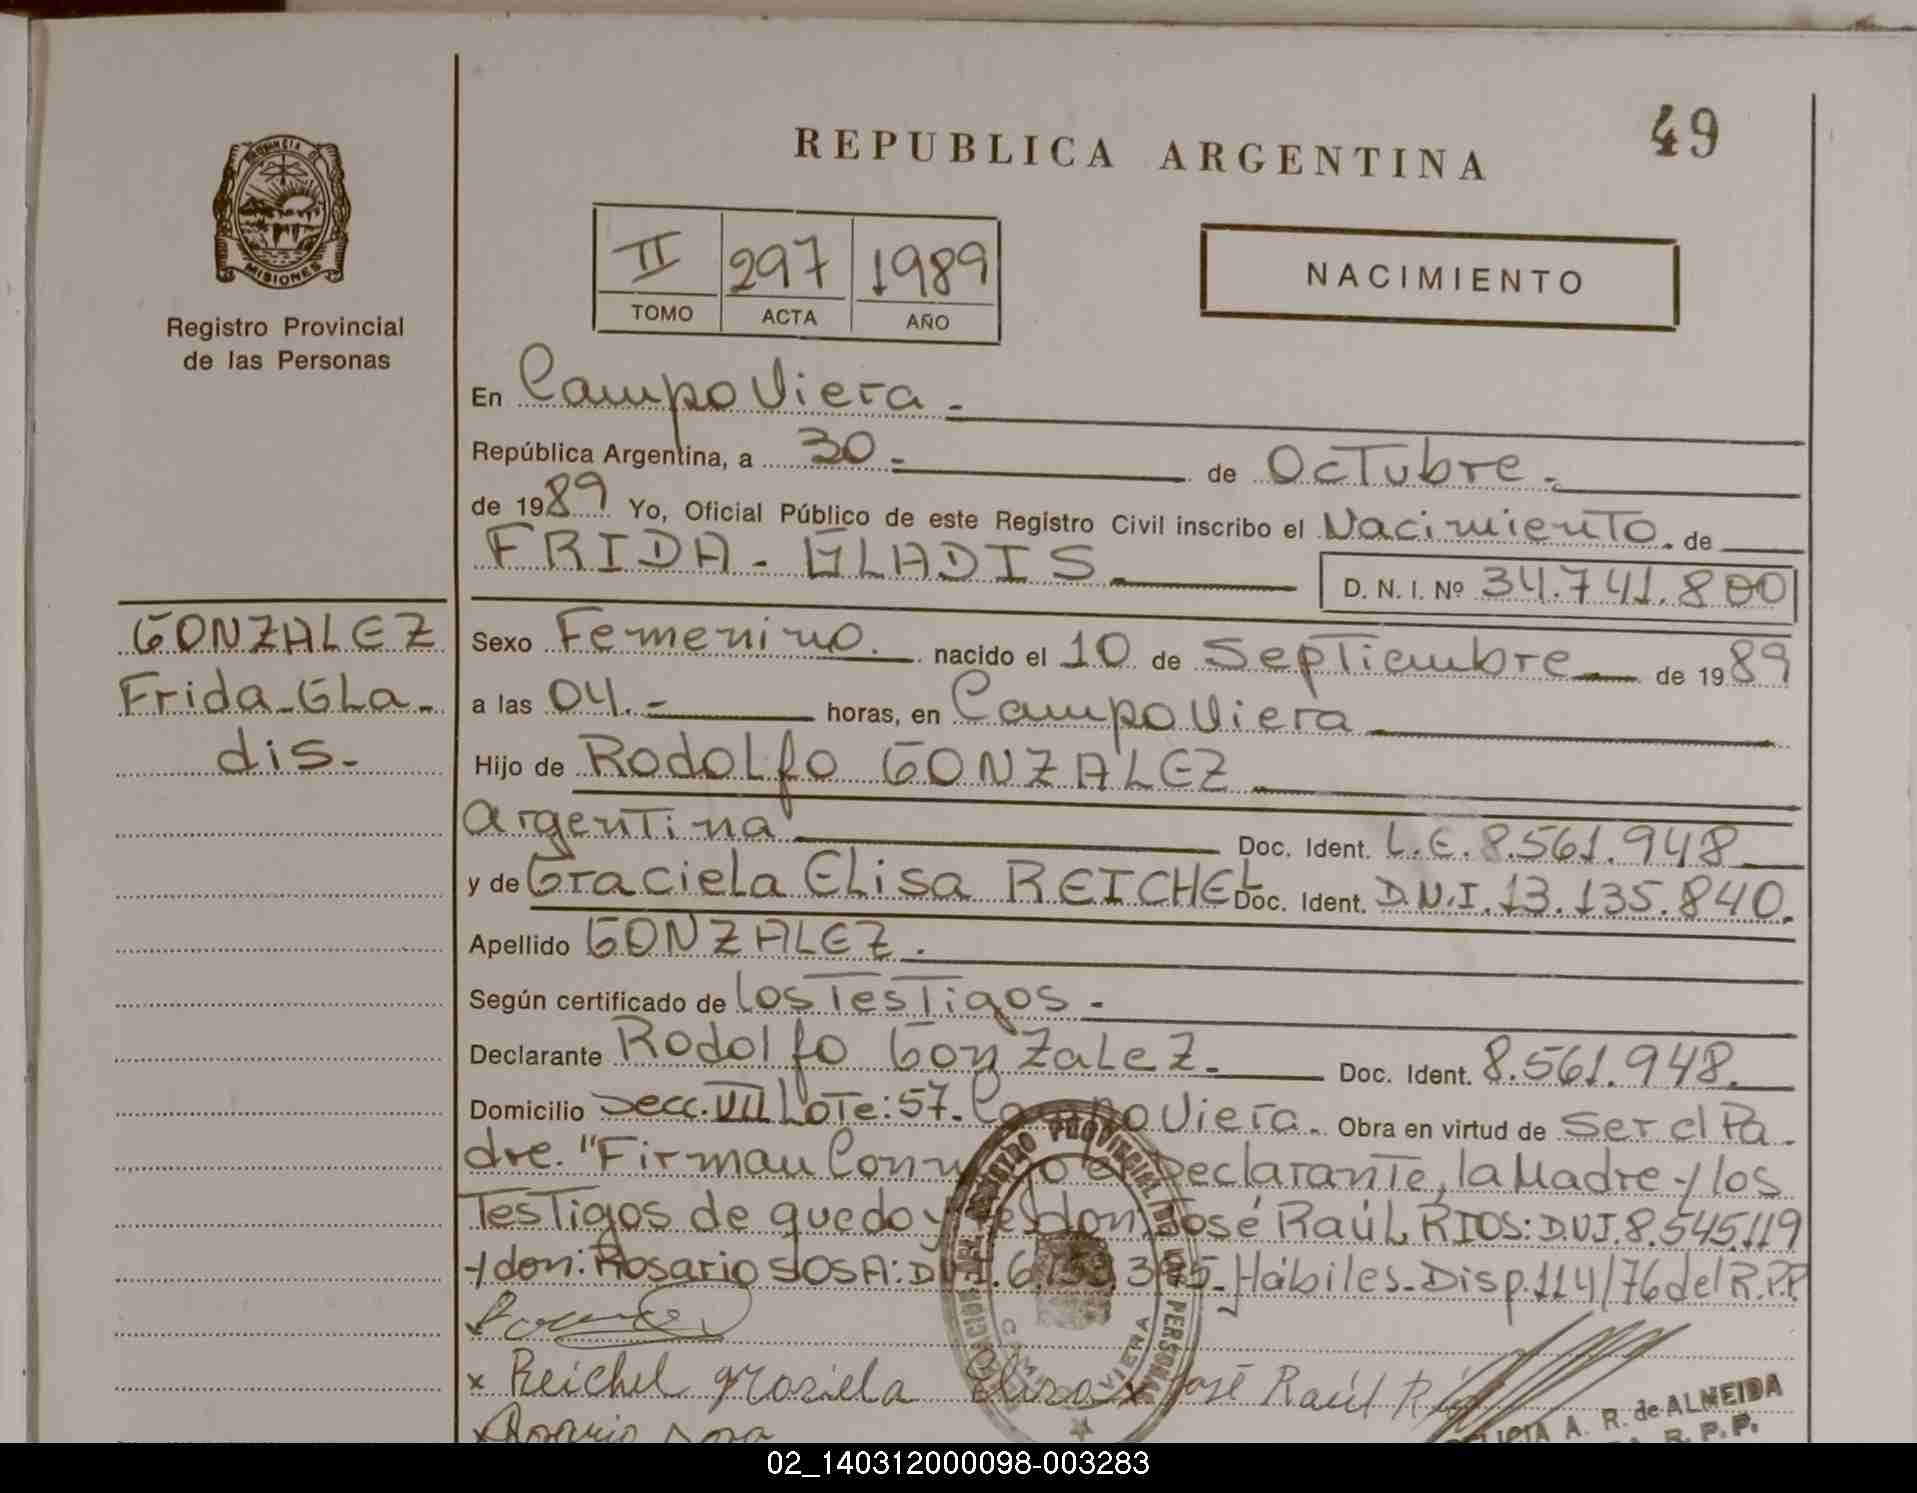 REPUBLICA ARGENTINA
49
PROVINCIA DE
MISIONES
Registro Provincial
de las Personas
II 297 1989
TOMO ACTA AÑO
NACIMIENTO
En Campo Viera.-
República Argentina, a 30.- de Octubre.-
de 1989 Yo, Oficial Público de este Registro Civil inscribo el Nacimiento. de
FRIDA - GLADIS D. N. I. Nº 34.741.800
GONZALEZ
Frida-GLa-
dis.-
Sexo Femenino. nacido el 10 de Septiembre de 1989
a las 04.- horas, en Campo Viera
Hijo de RodoLfo GONZALEZ
argentina Doc. Ident. L.E.8.561.948
y de Graciela ELisa REICHEL Doc. Ident. D.N.I.13.135.840.
Apellido GONZALEZ.
Según certificado de los Testigos-
Declarante Rodolfo GonzaLeZ. Doc. Ident. 8.561.948.
Domicilio Secc.VII Lote:57.Campo Viera. Obra en virtud de Ser el Pa-
dre. "Firman Conmigo el Declarante, la Madre y los
Testigos de que doy fe, don José RaúL RIOS: D.N.I.8.545.119
y don: Rosario SOSA: D.N.I. Hábiles-Disp.114/76 del R.P.P.
x Reichel Grasiela Elisa x José Raúl Rios
x Rosario Sosa
REGISTRO PROVINCIAL DE LAS PERSONAS
CAMPO VIERA
A. R. de ALMEIDA
R. P. P.
02_140312000098-003283